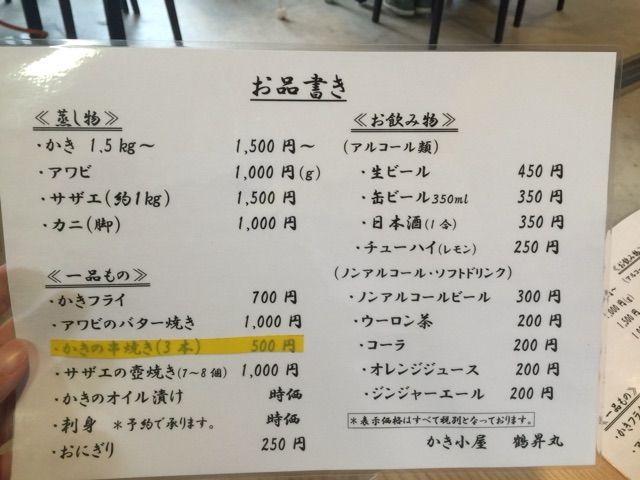 お品書き
≪蒸し物≫
・かき 1.5kg～ 1,500円～
・アワビ 1,000円(g)
・サザエ(約1kg) 1,500円
・カニ(脚) 1,000円
≪一品もの≫
・かきフライ 700円
・アワビのバター焼き 1,000円
・かきの串焼き(3本) 500円
・サザエの壺焼き(7～8個) 1,000円
・かきのオイル漬け 時価
・刺身 ＊予約で承ります。 時価
・おにぎり 250円
≪お飲み物≫
(アルコール類)
・生ビール 450円
・缶ビール350ml 350円
・日本酒(1合) 350円
・チューハイ(レモン) 250円
(ノンアルコール・ソフトドリンク)
・ノンアルコールビール 300円
・ウーロン茶 200円
・コーラ 200円
・オレンジジュース 200円
・ジンジャーエール 200円
＊表示価格はすべて税別となっております。
かき小屋 鶴昇丸
≪お蒸し物
1,000円
1,500
一品もの
・かきフラ